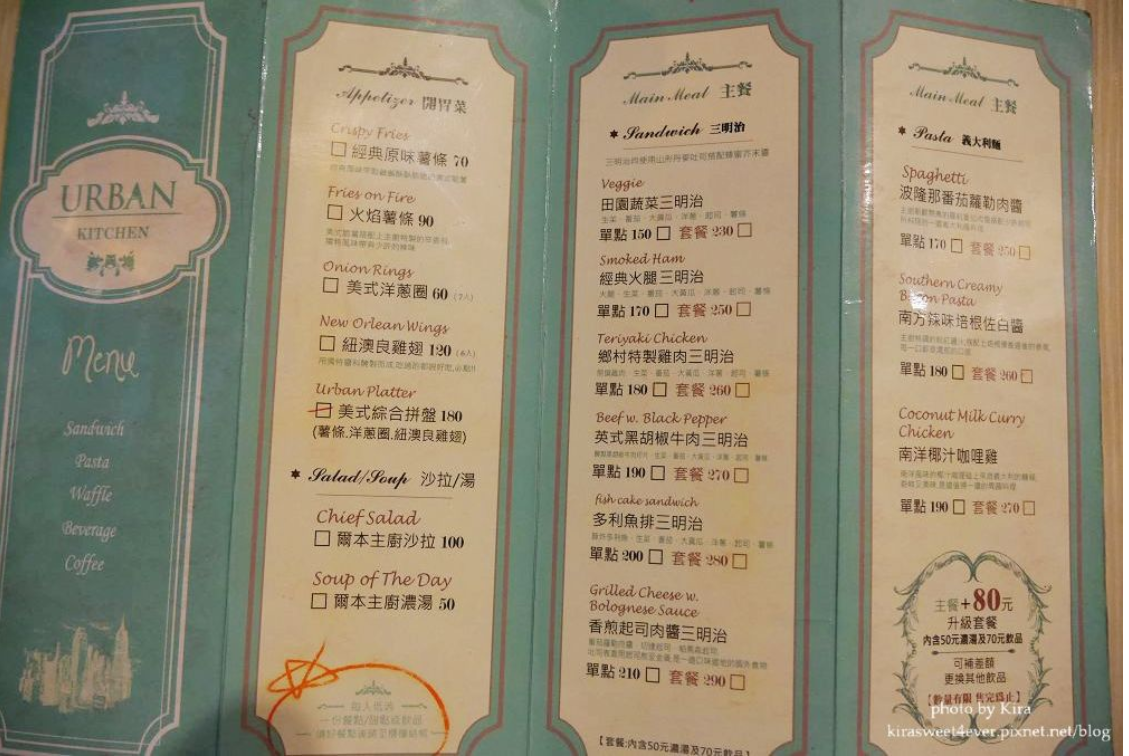 URBAN
KITCHEN
Menu
Sandwich
Pasta
Waffle
Beverage
Coffee
Appetizer 開胃菜
Crispy Fries
經典原味薯條 70
Fries on Fire
火焰薯條 90
Onion Rings
美式洋蔥圈 60
New Orlean Wings
紐澳良雞翅 120
Urban Platter
美式綜合拼盤 180
(薯條.洋蔥圈.紐澳良雞翅)
Salad/Soup 沙拉/湯
Chief Salad
爾本主廚沙拉 100
Soup of The Day
爾本主廚濃湯 50
每人低消
一份餐點/甜點或飲品
Main Meal 主餐
Sandwich 三明治
Veggie
田園蔬菜三明治
生菜．番茄．大黃瓜．洋蔥．起司．薯條
單點 150 套餐 230
Smoked Ham
經典火腿三明治
火腿．生菜．番茄．大黃瓜．洋蔥．起司．薯條
單點 170 套餐 250
Teriyaki Chicken
鄉村特製雞肉三明治
單點 180 套餐 260
Beef w. Black Pepper
英式黑胡椒牛肉三明治
單點 190 套餐 270
fish cake sandwich
多利魚排三明治
單點 200 套餐 280
Grilled Cheese w.
Bolognese Sauce
香煎起司肉醬三明治
單點 210 套餐 290
【套餐:內含50元濃湯及70元飲品】
Main Meal 主餐
Pasta 義大利麵
Spaghetti
波隆那番茄蘿勒肉醬
單點 170 套餐 250
Southern Creamy
Bacon Pasta
南方辣味培根佐白醬
單點 180 套餐 260
Coconut Milk Curry
Chicken
南洋椰汁咖哩雞
單點 190 套餐 270
主餐+80元
升級套餐
內含50元濃湯及70元飲品
可補差額
更換其他飲品
【數量有限 售完為止】
photo by Kira
kirasweet4ever.pixnet.net/blog